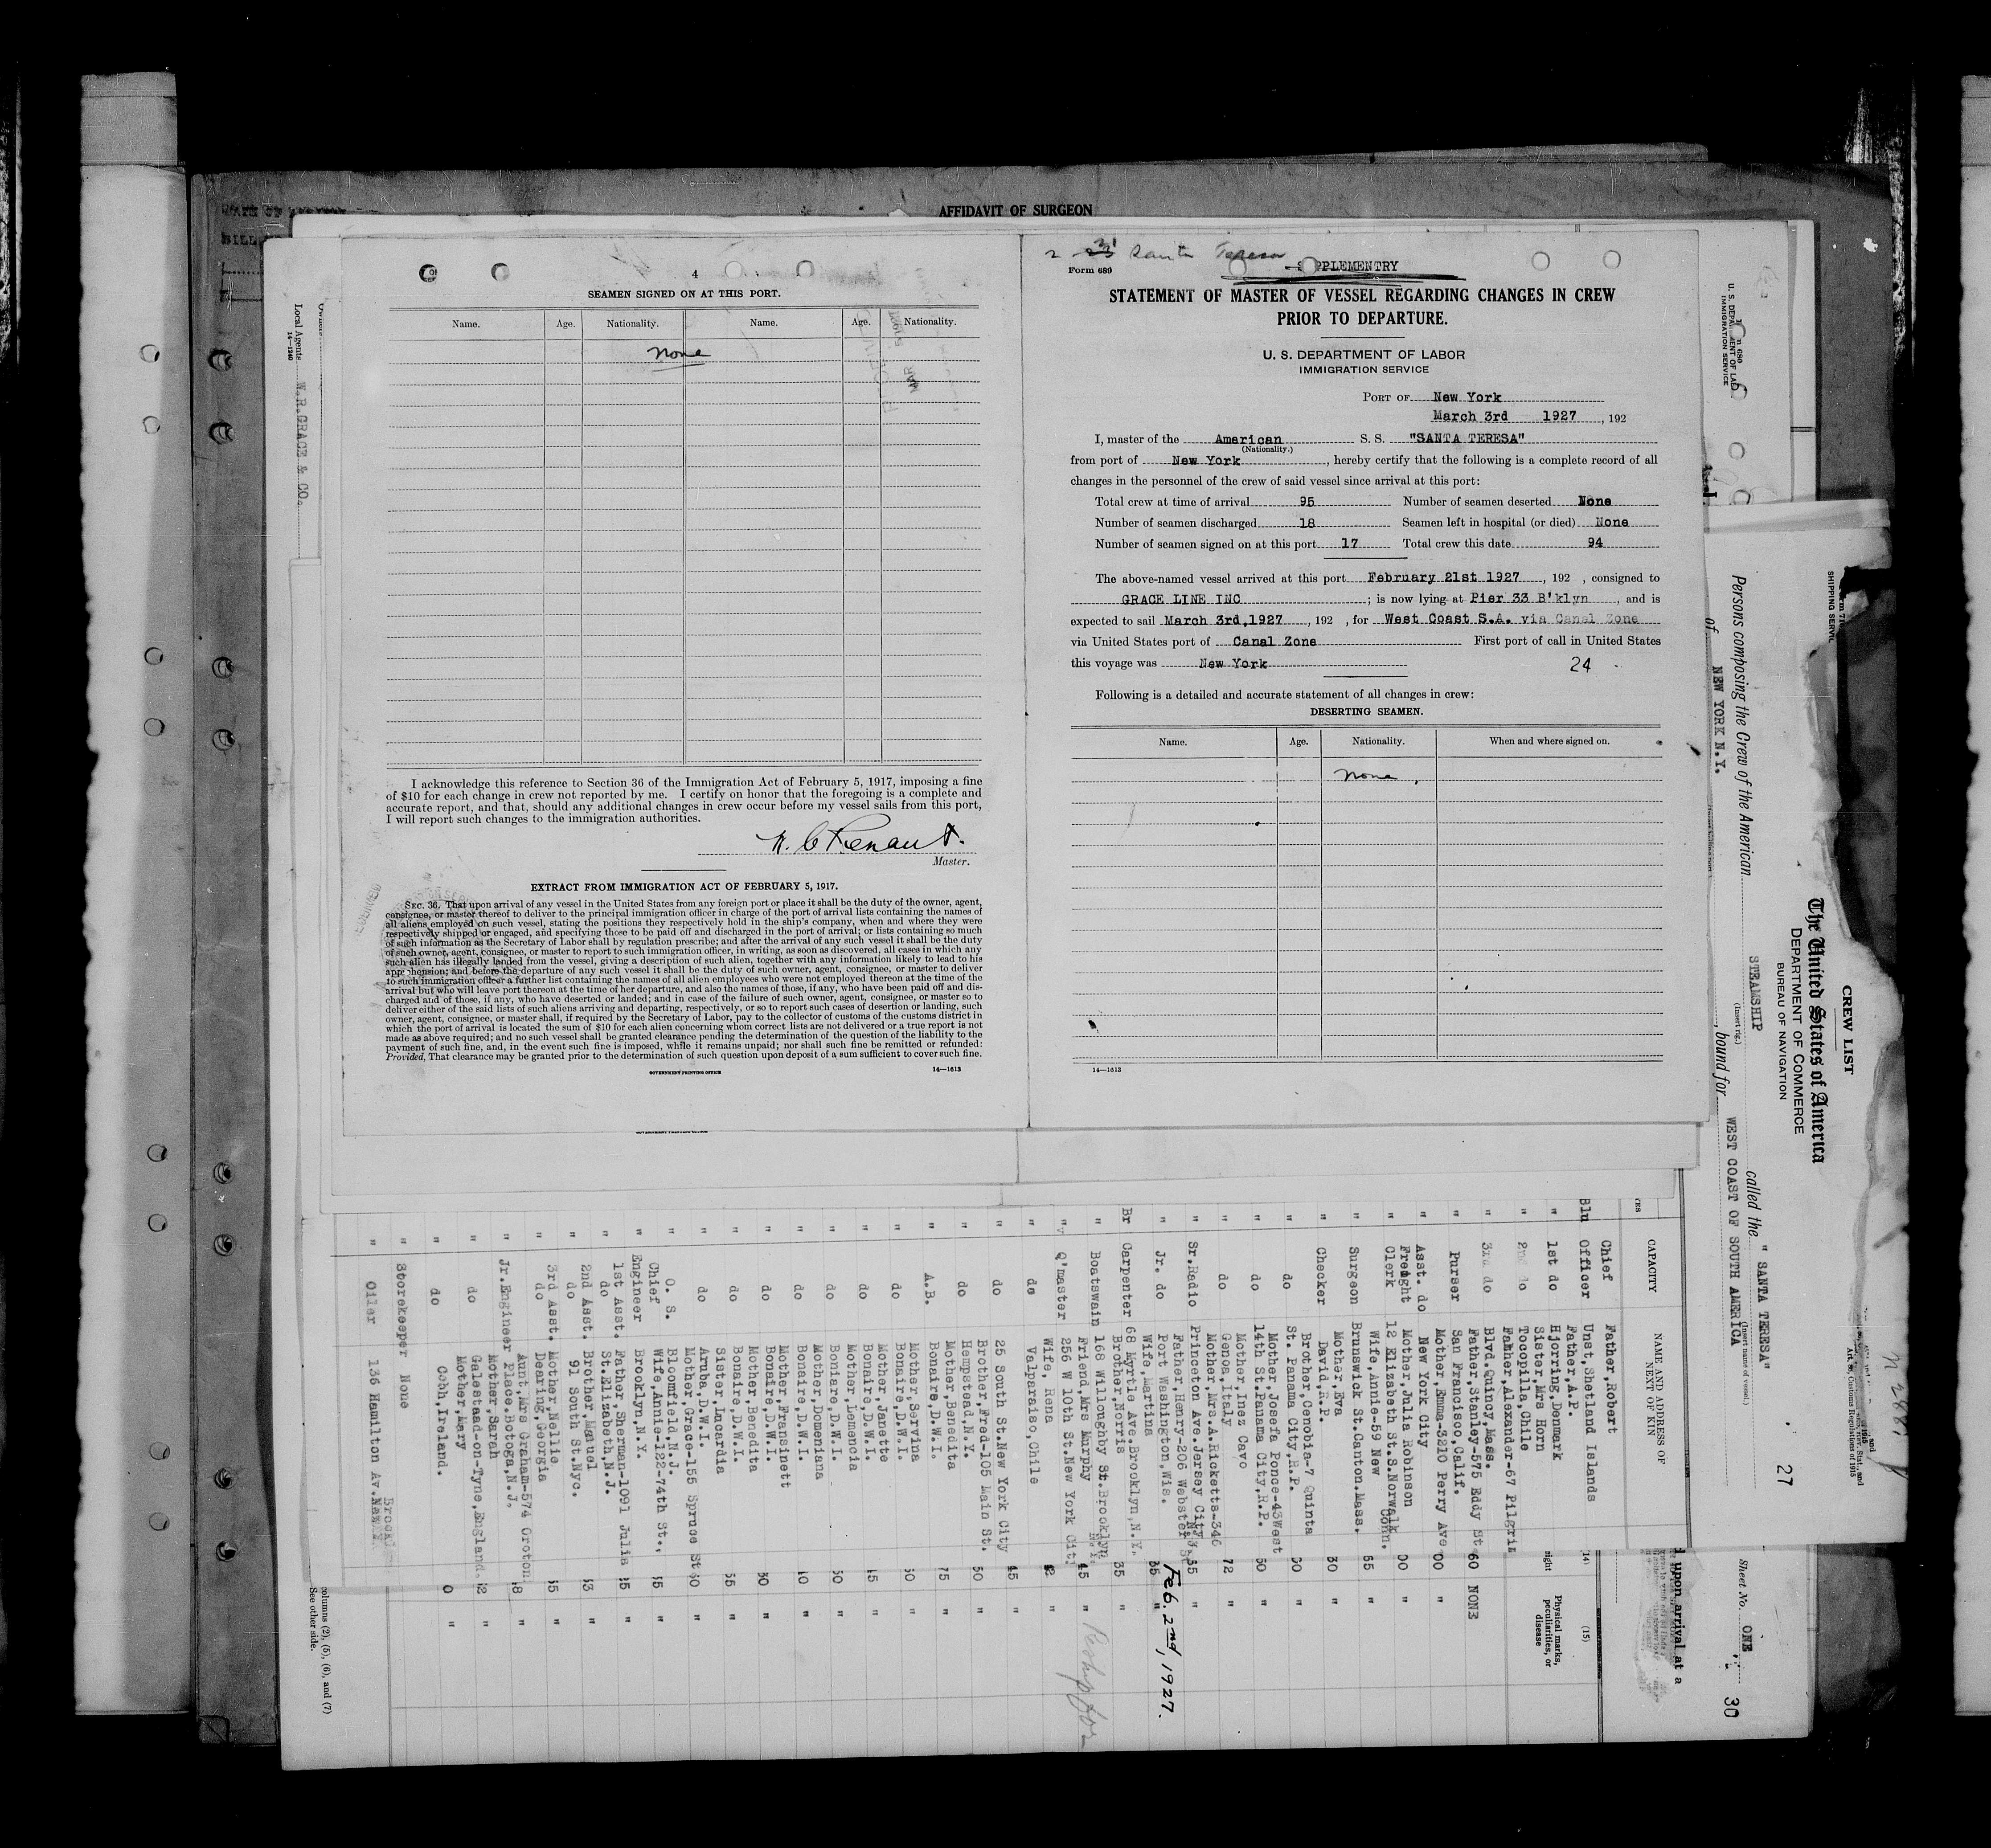 AFFIDAVIT OF SURGEON
4
SEAMEN SIGNED ON AT THIS PORT.
Name. Age. Nationality. Name. Age. Nationality.
None
I acknowledge this reference to Section 36 of the Immigration Act of February 5, 1917, imposing a fine
of $10 for each change in crew not reported by me. I certify on honor that the foregoing is a complete and
accurate report, and that, should any additional changes in crew occur before my vessel sails from this port,
I will report such changes to the immigration authorities.
Master.
EXTRACT FROM IMMIGRATION ACT OF FEBRUARY 5, 1917.
SEC. 36. That upon arrival of any vessel in the United States from any foreign port or place it shall be the duty of the owner, agent,
consignee, or master thereof to deliver to the principal immigration officer in charge of the port of arrival lists containing the names of
all aliens employed on such vessel, stating the positions they respectively held in the ship's company, when and where they were
respectively shipped or engaged, and specifying those to be paid off and discharged in the port of arrival; or lists containing so much
of such information as the Secretary of Labor shall by regulation prescribe; and after the arrival of any such vessel it shall be the duty
of such owner, agent, consignee, or master to report to such immigration officer, in writing, as soon as discovered, all cases in which any
such alien has illegally landed from the vessel, giving a description of such alien, together with any information likely to lead to his
apprehension; and before the departure of any such vessel it shall be the duty of such owner, agent, consignee, or master to deliver
to such immigration officer a further list containing the names of all alien employees who were not employed thereon at the time of the
arrival but who will leave port thereon at the time of her departure, and also the names of those, if any, who have been paid off and dis-
charged and of those, if any, who have deserted or landed; and in case of the failure of such owner, agent, consignee, or master so to
deliver either of the said lists of such aliens arriving and departing, respectively, or so to report such cases of desertion or landing, such
owner, agent, consignee, or master shall, if required by the Secretary of Labor, pay to the collector of customs of the customs district in
which the port of arrival is located the sum of $10 for each alien concerning whom correct lists are not delivered or a true report is not
made as above required; and no such vessel shall be granted clearance pending the determination of the question of the liability to the
payment of such fine, and, in the event such fine is imposed, while it remains unpaid; nor shall such fine be remitted or refunded:
Provided, That clearance may be granted prior to the determination of such question upon deposit of a sum sufficient to cover such fine.
GOVERNMENT PRINTING OFFICE 14—1613
Santa Teresa
Form 689 SUPPLEMENTRY
STATEMENT OF MASTER OF VESSEL REGARDING CHANGES IN CREW
PRIOR TO DEPARTURE.
U. S. DEPARTMENT OF LABOR
IMMIGRATION SERVICE
PORT OF New York
March 3rd 1927 , 192
I, master of the American S. S. "SANTA TERESA"
(Nationality.)
from port of New York , hereby certify that the following is a complete record of all
changes in the personnel of the crew of said vessel since arrival at this port:
Total crew at time of arrival 95 Number of seamen deserted None
Number of seamen discharged 18 Seamen left in hospital (or died) None
Number of seamen signed on at this port 17 Total crew this date 94
The above-named vessel arrived at this port February 21st 1927 , 192 , consigned to
GRACE LINE INC ; is now lying at Pier 33 B'klyn , and is
expected to sail March 3rd,1927 , 192 , for West Coast S.A. via Canal Zone
via United States port of Canal Zone First port of call in United States
this voyage was New York 24
Following is a detailed and accurate statement of all changes in crew:
DESERTING SEAMEN.
Name. Age. Nationality. When and where signed on.
None
14—1613
Local Agents W.R.GRACE & CO.
14—1240
CREW LIST
The United States of America
DEPARTMENT OF COMMERCE
BUREAU OF NAVIGATION
27
Persons composing the Crew of the American STEAMSHIP called the "SANTA TERESA"
(Insert rig.) (Insert name of vessel.)
of NEW YORK N.Y. , bound for WEST COAST OF SOUTH AMERICA
CAPACITY NAME AND ADDRESS OF
NEXT OF KIN
Chief Father,Robert
Officer Unst,Shetland Islands
Father,A.P.
1st do Hjorring,Denmark
Sister,Mrs Horn
2nd do Tocopilla,Chile
Father,Alexander-67 Pilgrim
Blvd.Quincy,Mass.
3rd do Father,Stanley-575 Eddy St
San Francisco,Calif.
Purser Mother,Emma-3210 Perry Ave
Asst. do New York City
Freight Mother,Julia Robinson
Clerk 12 Elizabeth St.S.Norwalk Conn.
Wife,Annie-59 New
Surgeon Brunswick St.Canton.Mass.
Mother,Eva
Checker David,R.P.
Brother,Cenobia-7 Quinta
do St. Panama City,R.P.
Mother,Josefa Ponce-43West
do 14th St.Panama City,R.P.
Mother,Inez Cavo
do Genoa,Italy
Mother,Mrs.A.Ricketts-346
Sr.Radio Princeton Ave.Jersey City N.J.
Father,Henry-206 Webster
Jr. do Port Washington,Wis.
Wife,Martina
Brother,Norris
Carpenter 68 Myrtle Ave.Brooklyn,N.Y.
Boatswain 168 Willoughby St.Brooklyn N.Y.
Friend,Mrs Murphy
Q'master 256 W 10th St.New York City
Wife, Rena
do Valparaiso,Chile
do 25 South St.New York City
Brother,Fred-105 Main St.
do Hempstead,N.Y.
Mother,Benedita
A.B. Bonaire,D.W.I.
Mother,Servina
do Bonaire,D.W.I.
Mother,Janette
do Bonaire,D.W.I.
Mother,Lemencia
do Boniare,D.W.I.
Mother,Domeniana
do Bonaire,D.W.I.
Mother,Fransinett
do Bonaire,D.W.I.
Mother,Benedita
do Bonaire,D.W.I.
Sister,Lucardia
do Aruba,D.W.I.
Mother,Grace-155 Spruce St
O. S. Bloomfield,N.J.
Chief Wife,Annie-122-74th St.,
Engineer Brooklyn,N.Y.
1st Asst. Father,Sherman-1091 Julia
do St.Elizabeth,N.J.
2nd Asst. Brother,Manuel
do 91 South St.Nyc.
3rd Asst. Mother,Nellie
do Dearing,Georgia
Aunt,Mrs Graham-574 Groton
Jr.Engineer Place.Botoga,N.J.
Mother,Sarah
do Galestead-on-Tyne,England.
Mother,Mary
do Cobh,Ireland.
Storekeeper None
Oiler 136 Hamilton Av.
Feb. 2nd, 1927.
NONE
Sheet No. ONE
30
upon arrival at a
(14) (15)
Physical marks,
peculiarities, or
disease
columns (2), (5), (6), and (7)
See other side.